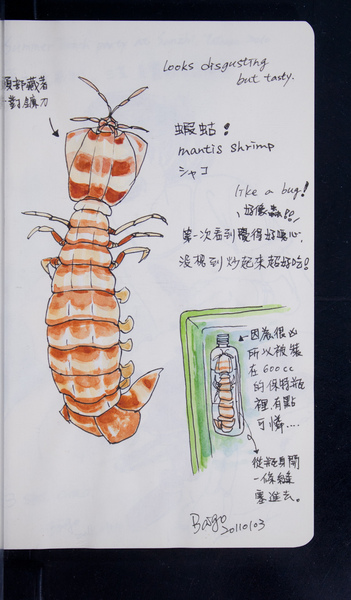 Looks disgusting
but tasty.
頭部藏著
一對鐮刀
蝦蛄!
mantis shrimp
シャコ
like a bug!
好像蟲!!
第一次看到覺得好噁心,
沒想到炒起來超好吃!
因為很凶
所以被裝
在600cc
的保特瓶
裡.有點
可憐....
從瓶身開
一條縫
塞進去。
20110103